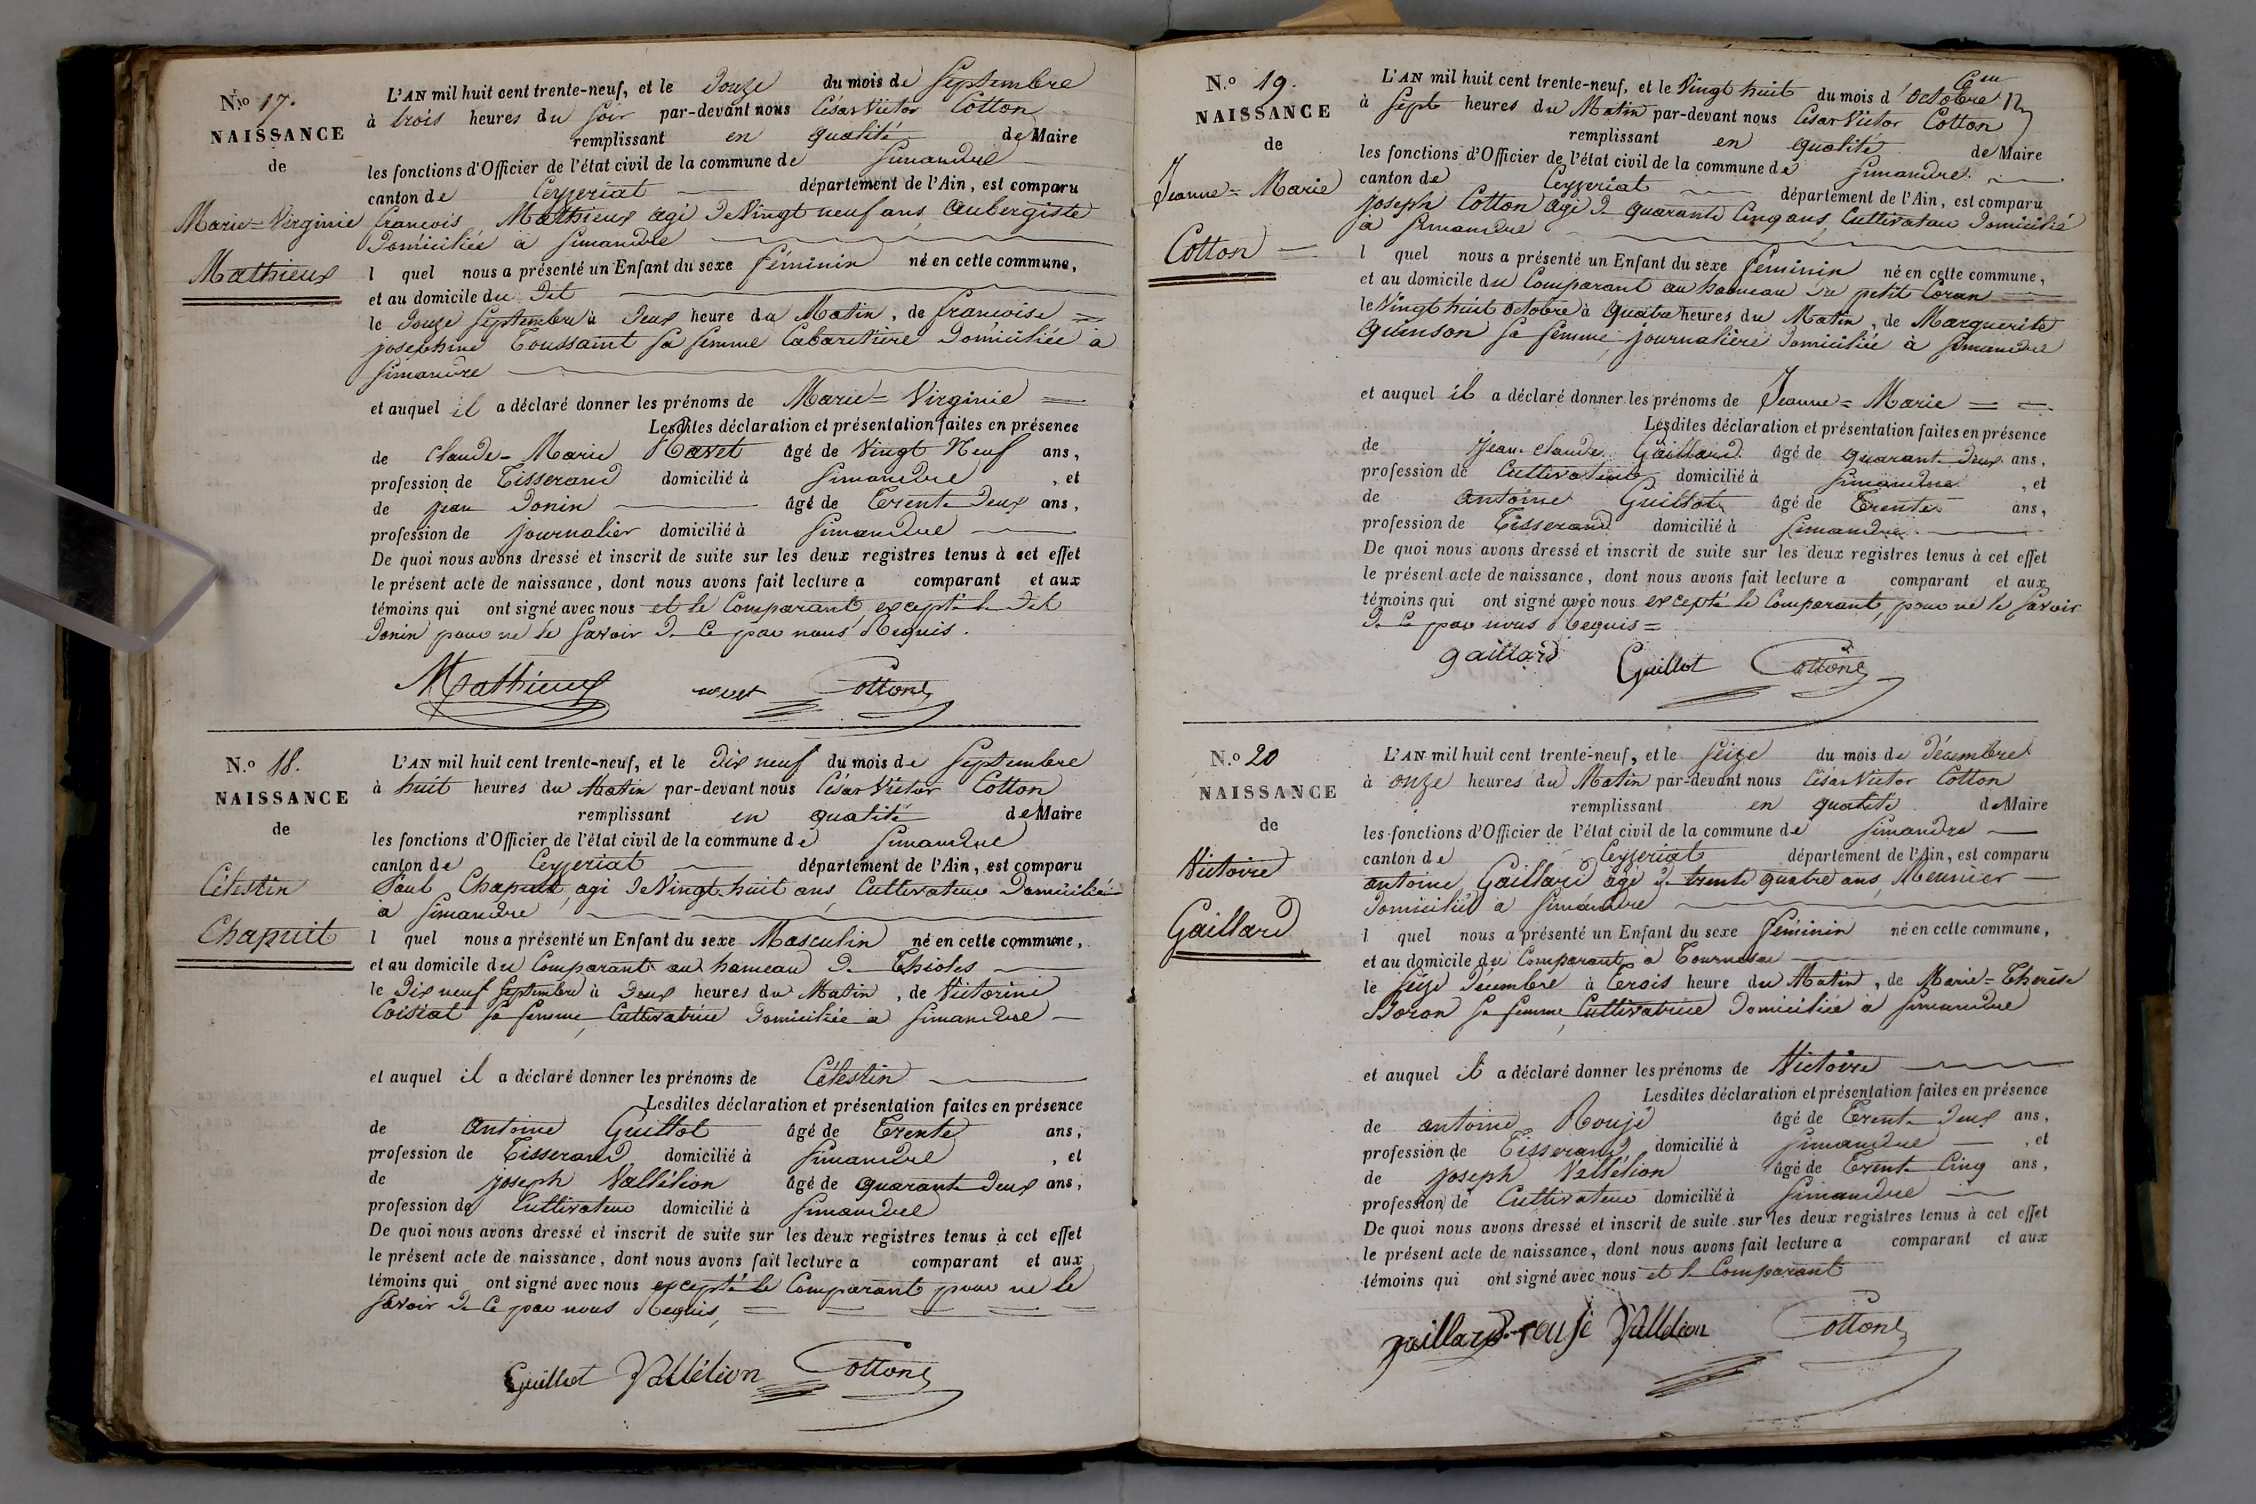 N.º 17.
NAISSANCE
de
Marie=Virginie
Mathieux
L'AN mil huit cent trente-neuf, et le Douze du mois de Septembre
à trois heures du soir par-devant nous César Victor Cotton
remplissant en qualité de Maire
les fonctions d'Officier de l'état civil de la commune de Simandre
canton de Ceyzeriat département de l'Ain, est comparu
francois Mathieux agé de Vingt neuf ans, aubergiste
Domiciliée à Simandre
l quel nous a présenté un Enfant du sexe féminin né en cette commune,
et au domicile du Dit
le Douze Septembre à Deux heure du Matin, de francoise
josephine Toussaint sa femme Cabaretière Domiciliée à
Simandre
et auquel il a déclaré donner les prénoms de Marie=Virginie
Lesdites déclaration et présentation faites en présence
de Claude-Marie Ravet âgé de Vingt Neuf ans,
profession de Tisserand domicilié à Simandre, et
de jean Donin âgé de Trente Deux ans,
profession de journalier domicilié à Simandre
De quoi nous avons dressé et inscrit de suite sur les deux registres tenus à cet effet
le présent acte de naissance, dont nous avons fait lecture a comparant et aux
témoins qui ont signé avec nous et le Comparant, excepté le Dit
Donin pour ne le savoir de ce par nous Requis.
Mathieux Cottone
N.º 18.
NAISSANCE
de
Célestin
Chapuit
L'AN mil huit cent trente-neuf, et le Dix neuf du mois de Septembre
à huit heures du Matin par-devant nous César Victor Cotton
remplissant en qualité de Maire
les fonctions d'Officier de l'état civil de la commune de Simandre
canton de Ceyzeriat département de l'Ain, est comparu
Paul Chapuit, agé de Vingt huit ans, Cultivateur Domiciliée
à Simandre
l quel nous a présenté un Enfant du sexe Masculin né en cette commune,
et au domicile du Comparant au hameau de Thioles
le Dix neuf Septembre à Deux heures du Matin, de Victorine
Coistat sa femme, Cultivatrice Domiciliée à Simandre
et auquel il a déclaré donner les prénoms de Célestin
Lesdites déclaration et présentation faites en présence
de antoine Guillot âgé de Trente ans,
profession de Tisserand domicilié à Simandre, et
de joseph Vallélion âgé de quarante Deux ans,
profession de Cultivateur domicilié à Simandre
De quoi nous avons dressé et inscrit de suite sur les deux registres tenus à cet effet
le présent acte de naissance, dont nous avons fait lecture a comparant et aux
témoins qui ont signé avec nous excepté le Comparant pour ne le
savoir de ce par nous Requis,
Guillot Vallélion Cottone
N.º 19.
NAISSANCE
de
Jeanne=Marie
Cotton
L'AN mil huit cent trente-neuf, et le Vingt huit du mois d'octobre
à sept heures du Matin par-devant nous César Victor Cotton
remplissant en qualité de Maire
les fonctions d'Officier de l'état civil de la commune de Simandre
canton de Ceyzeriat département de l'Ain, est comparu
joseph Cotton agé de quarante Cinq ans, Cultivateur Domicilié
à Simandre
l quel nous a présenté un Enfant du sexe féminin né en cette commune,
et au domicile du Comparant au hameau du petit Coran
le Vingt huit octobre à quatre heures du Matin, de Marguerite
quinson sa femme, journalière Domiciliée à Simandre
et auquel il a déclaré donner les prénoms de Jeanne=Marie
Lesdites déclaration et présentation faites en présence
de jean Claude Gaillard âgé de quarante Deux ans,
profession de Cultivateur domicilié à Simandre, et
de antoine Guillot âgé de Trente ans,
profession de Tisserand domicilié à Simandre
De quoi nous avons dressé et inscrit de suite sur les deux registres tenus à cet effet
le présent acte de naissance, dont nous avons fait lecture a comparant et aux
témoins qui ont signé avec nous excepté le Comparant, pour ne le savoir
de ce par nous Requis=
gaillard Guillot Cottone
N.º 20
NAISSANCE
de
Victoire
Gaillard
L'AN mil huit cent trente-neuf, et le Seize du mois de décembre
à onze heures du Matin par-devant nous César Victor Cotton
remplissant en qualité de Maire
les fonctions d'Officier de l'état civil de la commune de Simandre
canton de Ceyzeriat département de l'Ain, est comparu
antoine Gaillard agé de trente quatre ans, Meunier
Domicilié à Simandre
l quel nous a présenté un Enfant du sexe féminin né en cette commune,
et au domicile du Comparant, à
le Seize Décembre à trois heure du Matin, de Marie=Thérèse
Boron sa femme, Cultivatrice Domiciliée à Simandre
et auquel il a déclaré donner les prénoms de Victoire
Lesdites déclaration et présentation faites en présence
de antoine Roujé âgé de Trente Deux ans,
profession de Tisserand domicilié à Simandre, et
de joseph Vallélion âgé de Trente Cinq ans,
profession de Cultivateur domicilié à Simandre
De quoi nous avons dressé et inscrit de suite sur les deux registres tenus à cet effet
le présent acte de naissance, dont nous avons fait lecture a comparant et aux
témoins qui ont signé avec nous et le Comparant
gaillard roujé Vallélion Cottone